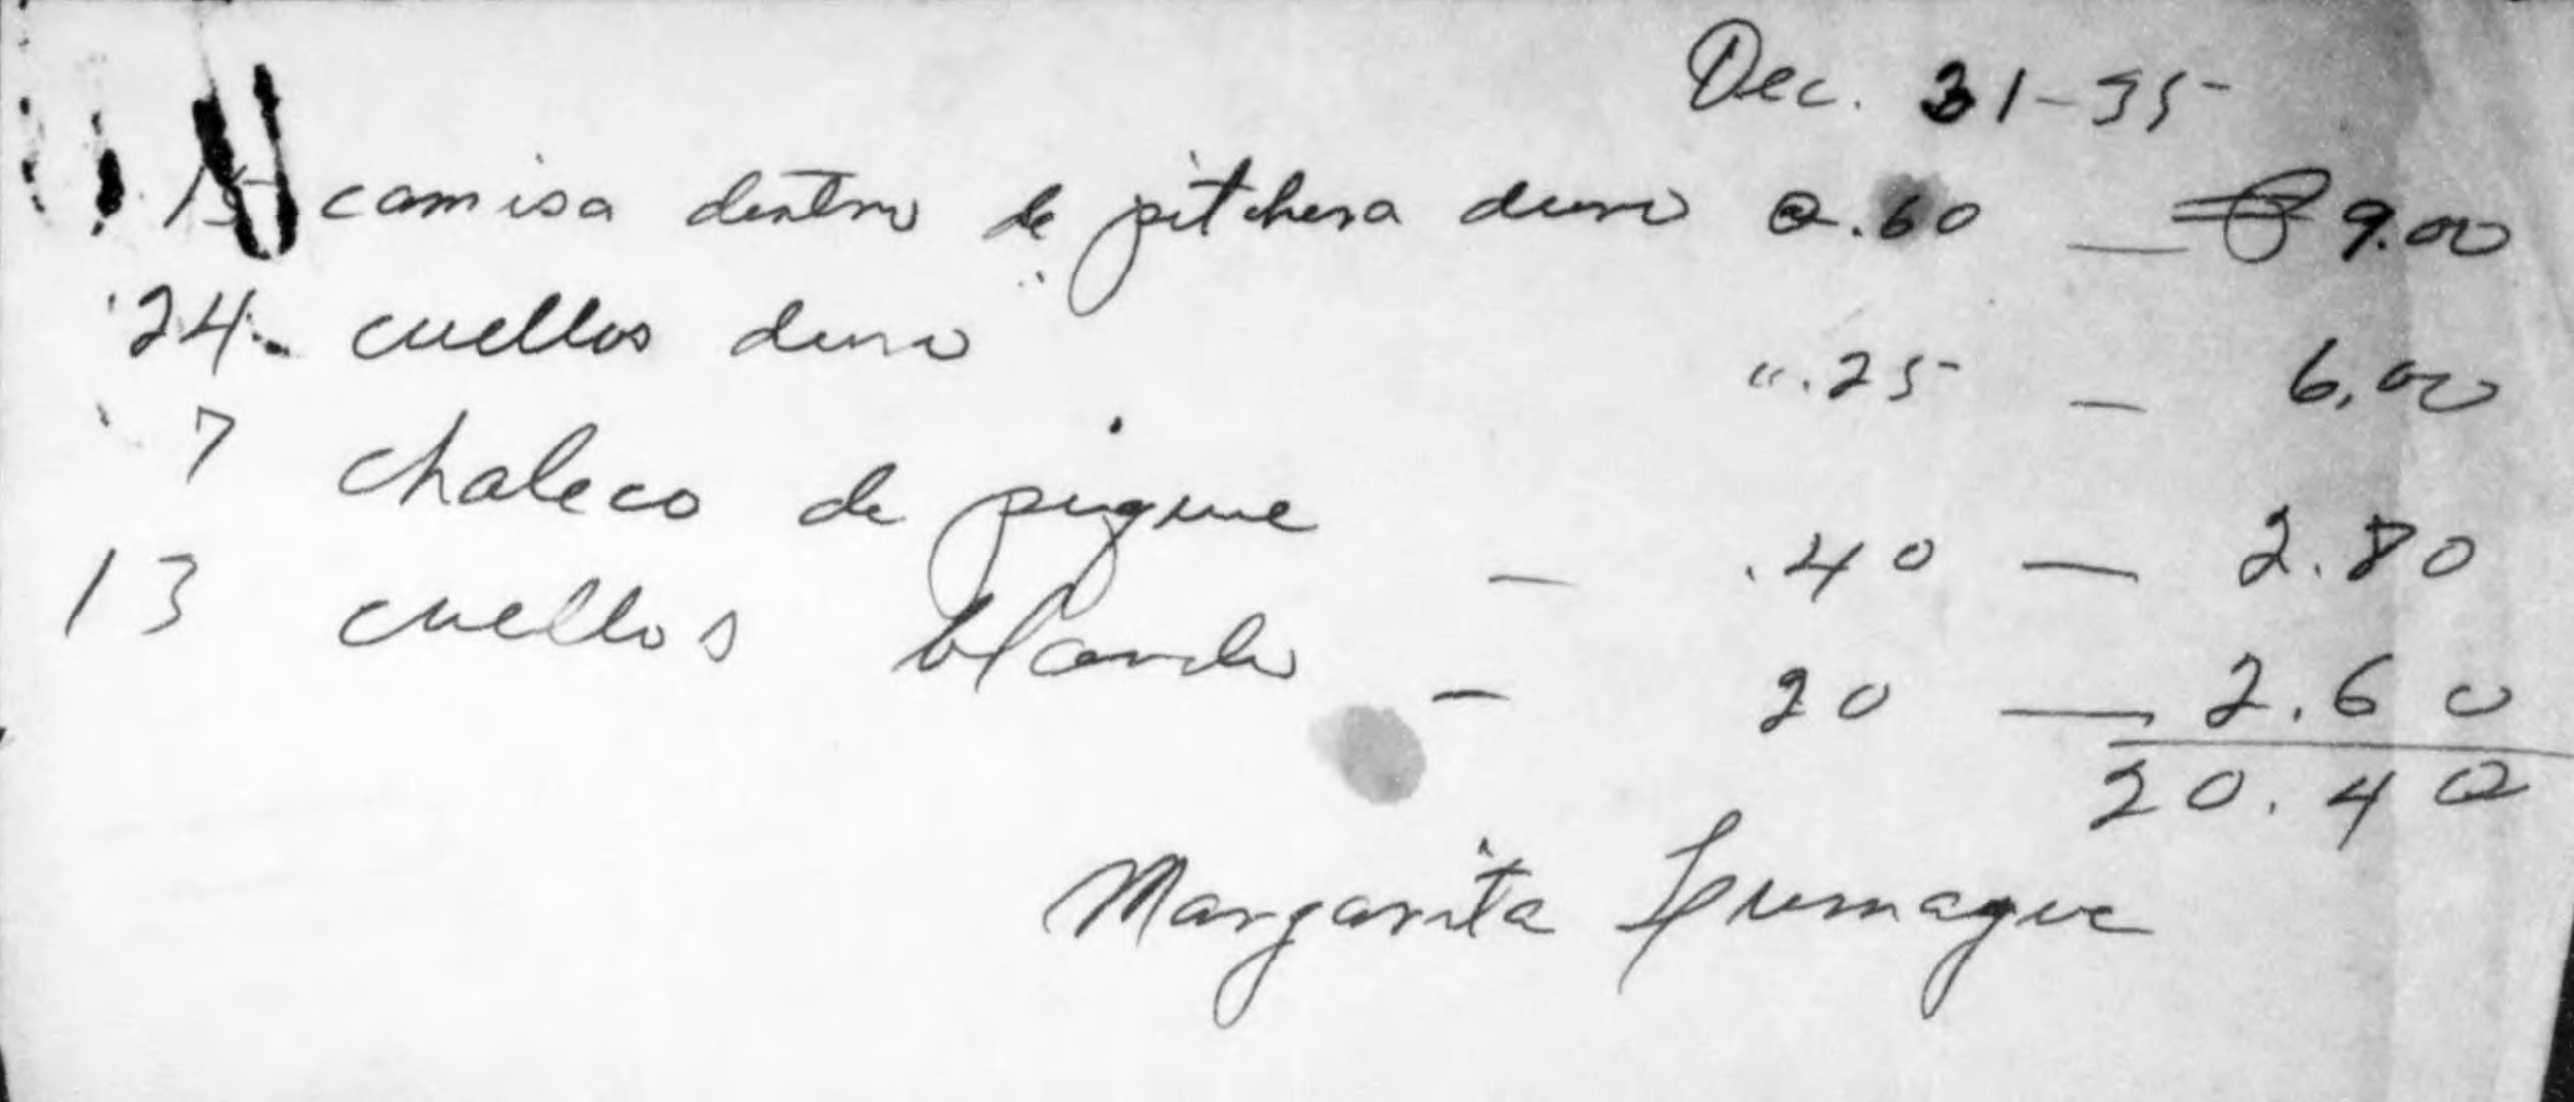 Dec. 31-35
15 camisa dentro de pitchera duro @ .60 — ₱ 9.00
24 - cuellos duro " .25 — 6.00
7 chaleco de pique — .40 — 2.80
13 cuellos blando — 20 — 2.60
20.40
Margarita